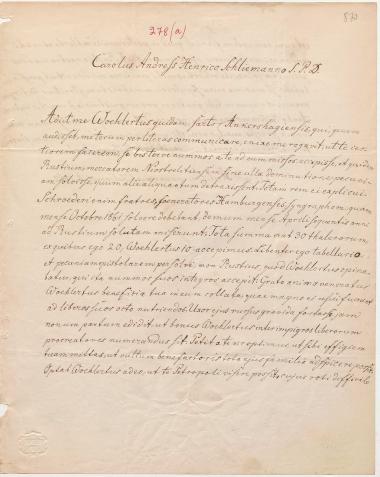 278(a)
870
Carolus Andreſs Henrico Schliemanno S. P. D.
Adiit me Woehlertus quidam sartor Ankershagiensis, qui, quum
audisset, me tecum per literas communicare, enixe me rogavit, ut te cer-
tiorem facerem, se bis terre nummos a te ad eum missos accepisse, et quidem
Rustium mercatorem Neostrelitiensem sine ulla deminutione pecuni-
am solvisse, quum alii aliquantum detraxissent. Totam rem ei explicui.
Schroederi enim fratres, feneratores Hamburgenses, syngrapham, quam
mense Octobri 1861 solvere debebant, demum mense Aprili sequentis anni
ad Rustium solutam miserunt. Tota summa erat 30 thalerorum
ex quibus ego 20, Woehlertus 10 accepimus. Libenter ego tabellario
et pecuniam epistolarem persolvi, non Rustius, quod Woehlertus opina-
batur, qui ita nummos suos integros accepit. Grato animo veneratur
Woehlertus beneficia tua in eum collata, quae magno ei usui fuerunt
ad liberos suos octo nutriendos. Uxor ejus rursus gravida fortasse jam
nonum partum edidit, ut bonus Woehlertus inter impigros liberorum
procreatores numerandus sit. Petit a te vir optimus, ut sibi effigiem
tuam mittas, ut vultum benefactoris tota ejus familia adspicere possit.
Optat Woehlertus adeo, ut te Petropoli visere possit, cujus voti difficile